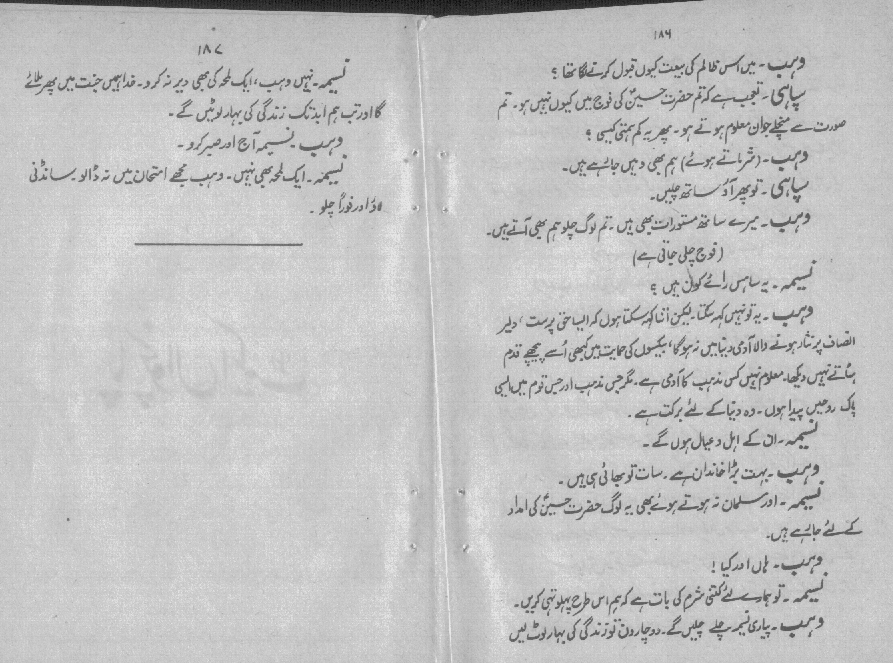 ۱۸۶
وہب۔ میں اس ظالم کی بیعت کیوں قبول کرنے لگا تھا؟
سپاہی۔ تعجب ہے کہ تم حضرت حسینؑ کی فوج میں کیوں نہیں ہو۔ تم
صورت سے منچلے جوان معلوم ہوتے ہو۔ پھر یہ کم ہمتی کیسی؟
وہب۔ (شرماتے ہوئے) ہم بھی وہیں جا رہے ہیں۔
سپاہی۔ تو پھر آؤ ساتھ چلیں۔
وہب۔ میرے ساتھ مستورات بھی ہیں۔ تم لوگ چلو ہم بھی آتے ہیں۔
(فوج چلی جاتی ہے)
نسیمہ۔ یہ ساہس رائے کون ہیں؟
وہب۔ یہ تو نہیں کہہ سکتا۔ لیکن اتنا کہہ سکتا ہوں کہ ایسا حق پرست، دلیر
انصاف پر نثار ہونے والا آدمی دنیا میں نہ ہو گا، بیکسوں کی حمایت میں کبھی اُسے پیچھے قدم
ہٹاتے نہیں دیکھا۔ معلوم نہیں کس مذہب کا آدمی ہے۔ مگر جس مذہب اور جس قوم میں ایسی
پاک روحیں پیدا ہوں۔ وہ دنیا کے لئے برکت ہے۔
نسیمہ۔ ان کے اہل و عیال ہوں گے۔
وہب۔ بہت بڑا خاندان ہے۔ سات تو بھائی ہی ہیں۔
نسیمہ۔ اور مسلمان نہ ہوتے ہوئے بھی یہ لوگ حضرت حسینؑ کی امداد
کے لئے جا رہے ہیں۔
وہب۔ ہاں اور کیا!
نسیمہ۔ تو ہمارے لئے کتنی شرم کی بات ہے کہ ہم اس طرح پہلو تہی کریں۔
وہب۔ پیاری نسیمہ چلے چلیں گے۔ دو چار دن تو زندگی کی بہار لوٹ لیں
۱۸۷
نسیمہ۔ نہیں وہب، ایک لمحہ کی بھی دیر نہ کرو۔ خدا ہمیں جنت میں پھر ملائے
گا اور تب ہم ابد تک زندگی کی بہار لوٹیں گے۔
وہب۔ نسیمہ آج اور صبر کرو۔
نسیمہ۔ ایک لمحہ بھی نہیں۔ وہب مجھے امتحان میں نہ ڈالو۔ سانڈنی
لاؤ اور فوراً چلو۔